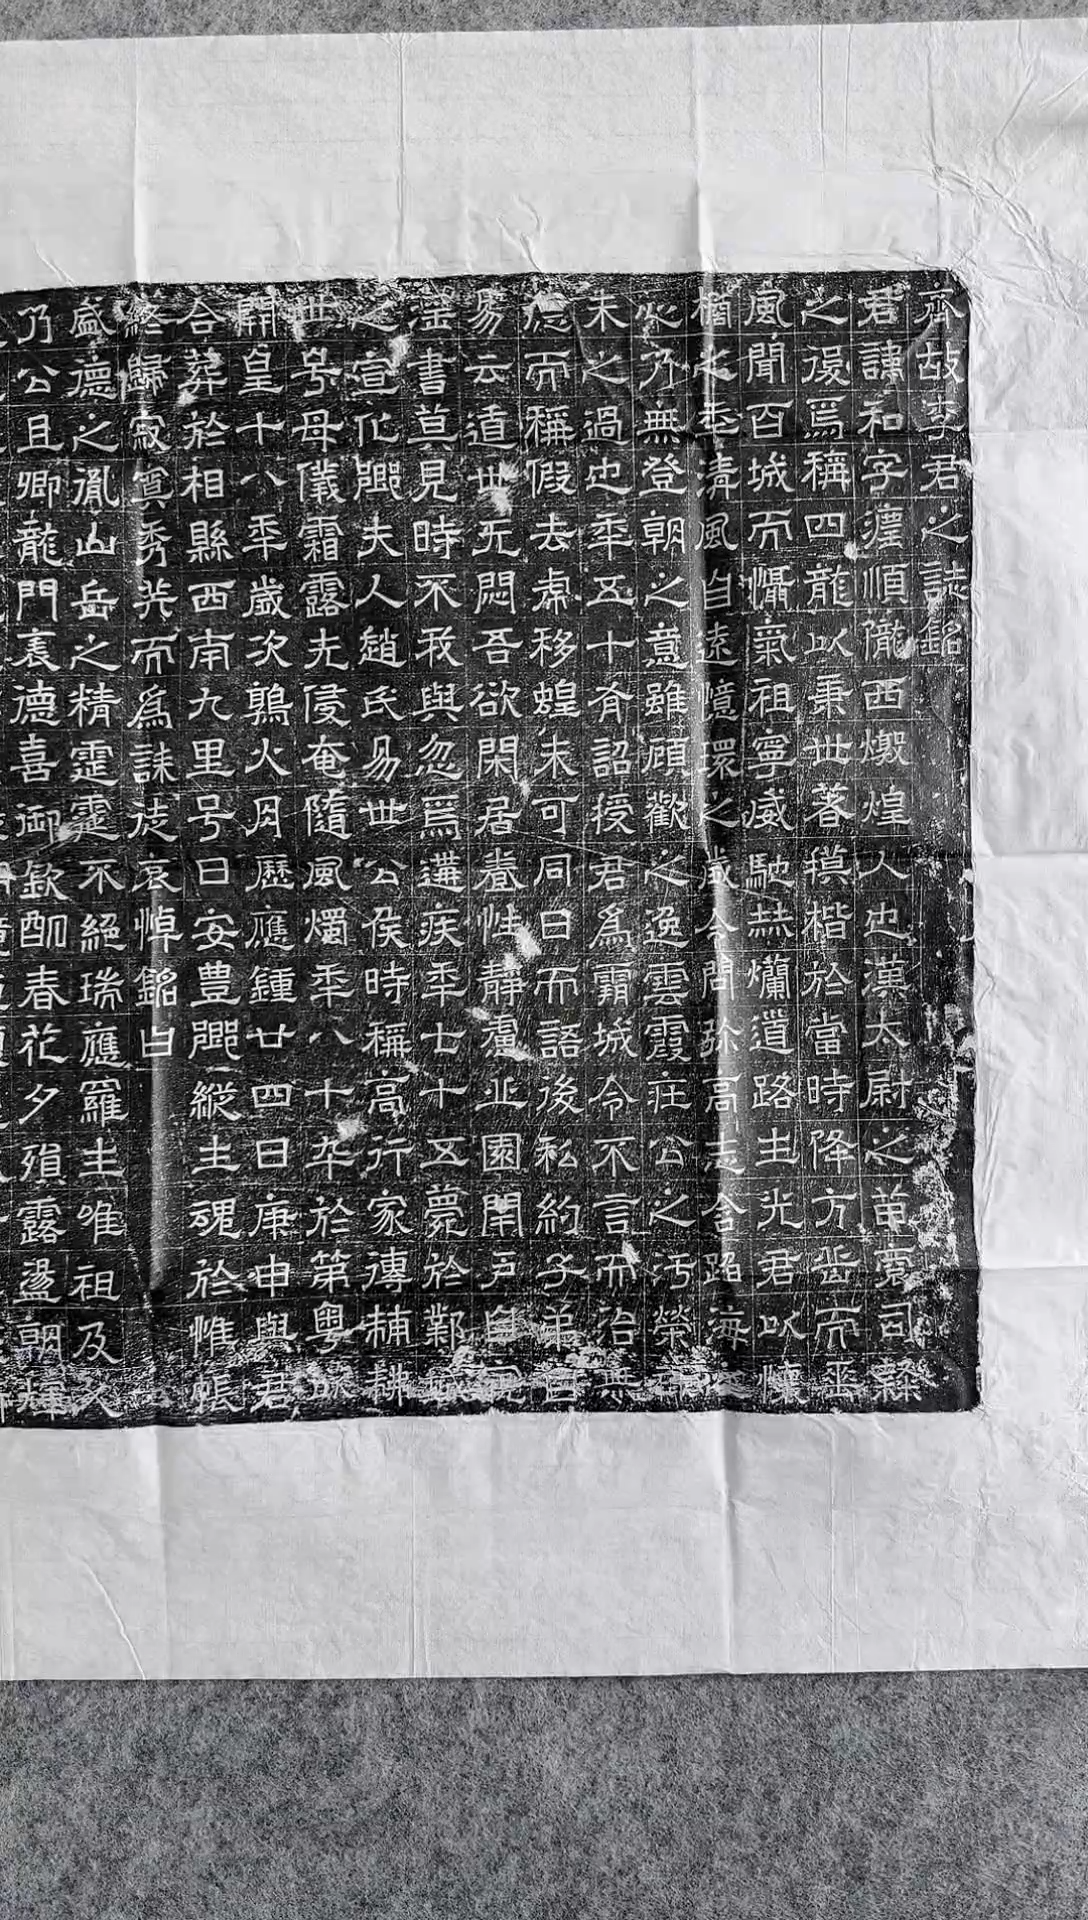 齊故李君之誌銘
君諱和字纏順隴西燉煌人也漢太尉之苗裔司隸
之後焉稱四龍以秉世著摸楷於當時降方岳而垂
風聞百城而懾氣祖寧威馳赫爛道路生光君以懷
橘之年清風自遠憶環之歲令問弥高志含蹈海
心乃無登朝之意雖顧歡之逸雲霞莊公之污榮
未之過也年五十有詔授君為霸城令不言而治無
而稱假去虎移蝗未可同日而語後私約子弟曰
易云遁世无悶吾欲閑居養性靜慮丘園閉戶自
淫書莫見時不我與忽焉遘疾年七十五薨於鄴
之宣化里夫人趙氏易世公侯時稱高行家傳楠
世号母儀霜露先侵奄隨風燭年八十卒於第粵
開皇十八年歲次鶉火月歷應鍾廿四日庚申與君
合葬於相縣西南九里号曰安豊里縱生魂於帷帳
終歸寂寞秀苂而為誄徒哀悼銘曰
盛德之胤山岳之精靈靈不絕瑞應羅生唯祖及父
乃公且卿龍門表德喜御欽酬春花夕殞露盪朝輝